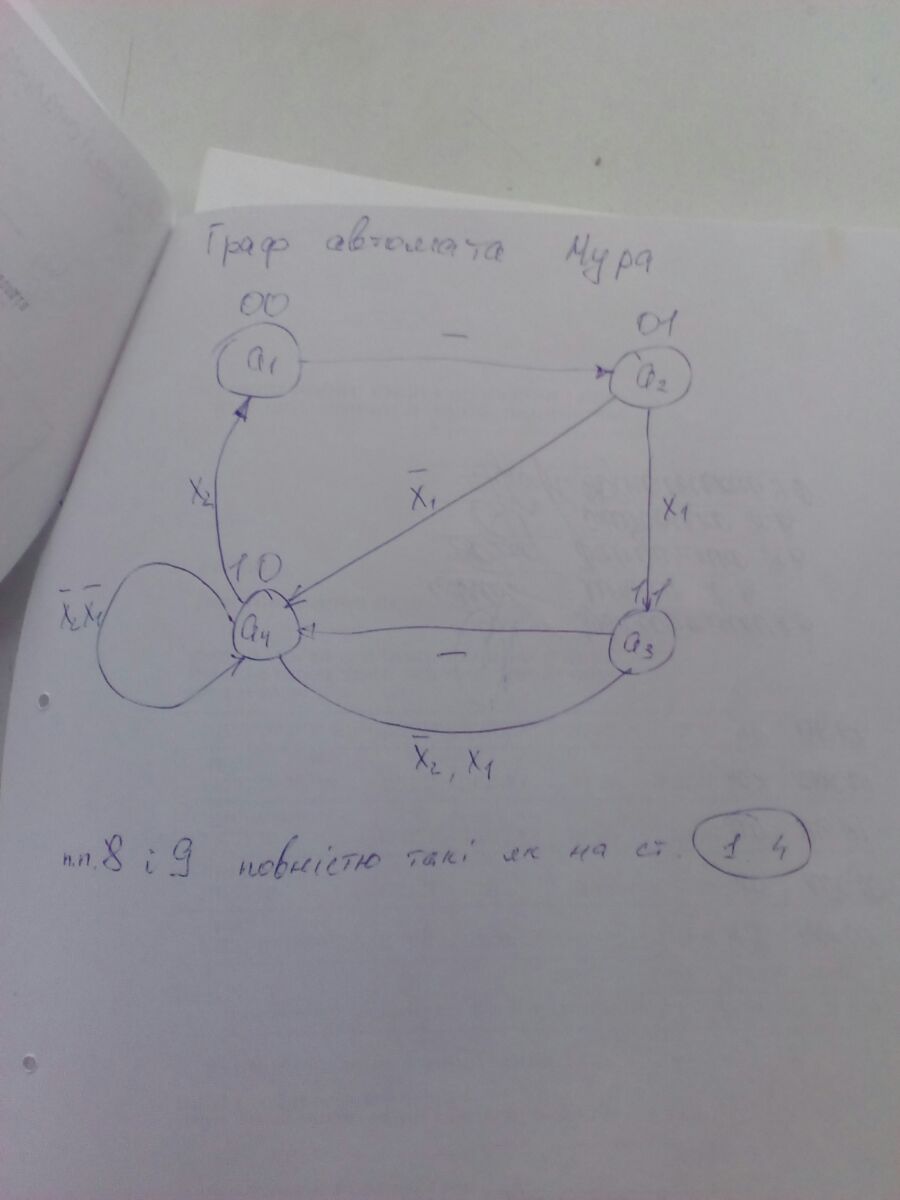 Граф автомата Мура
00
01
a₁
—
a₂
x̄₁
x₂
x₁
10
11
x̄₂x̄₁
a₄
a₃
—
x̄₂, x₁
п.п. 8 і 9 повністю такі як на ст. 14